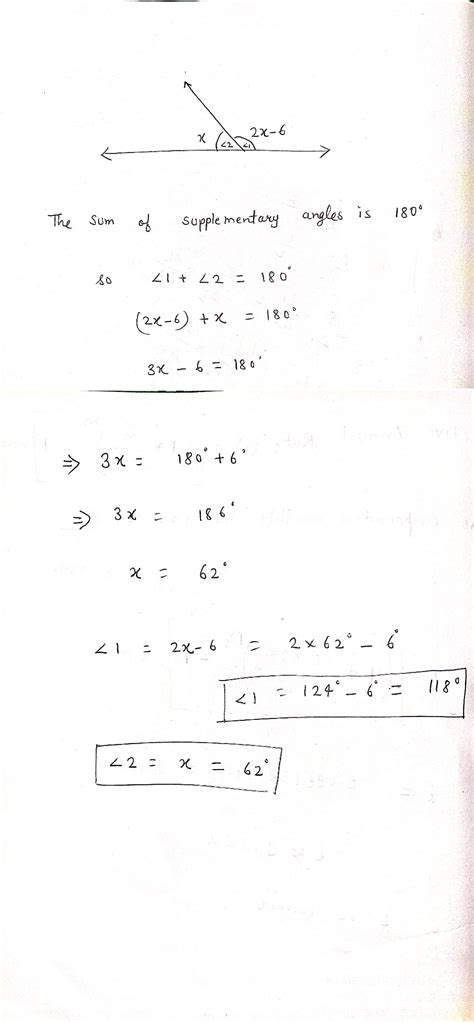 x ∠2 ∠1 2x-6
The sum of supplementary angles is 180°
so ∠1 + ∠2 = 180°
(2x-6) + x = 180°
3x - 6 = 180°
⇒ 3x = 180° + 6°
⇒ 3x = 186°
x = 62°
∠1 = 2x-6 = 2×62° - 6°
∠1 = 124° - 6° = 118°
∠2 = x = 62°